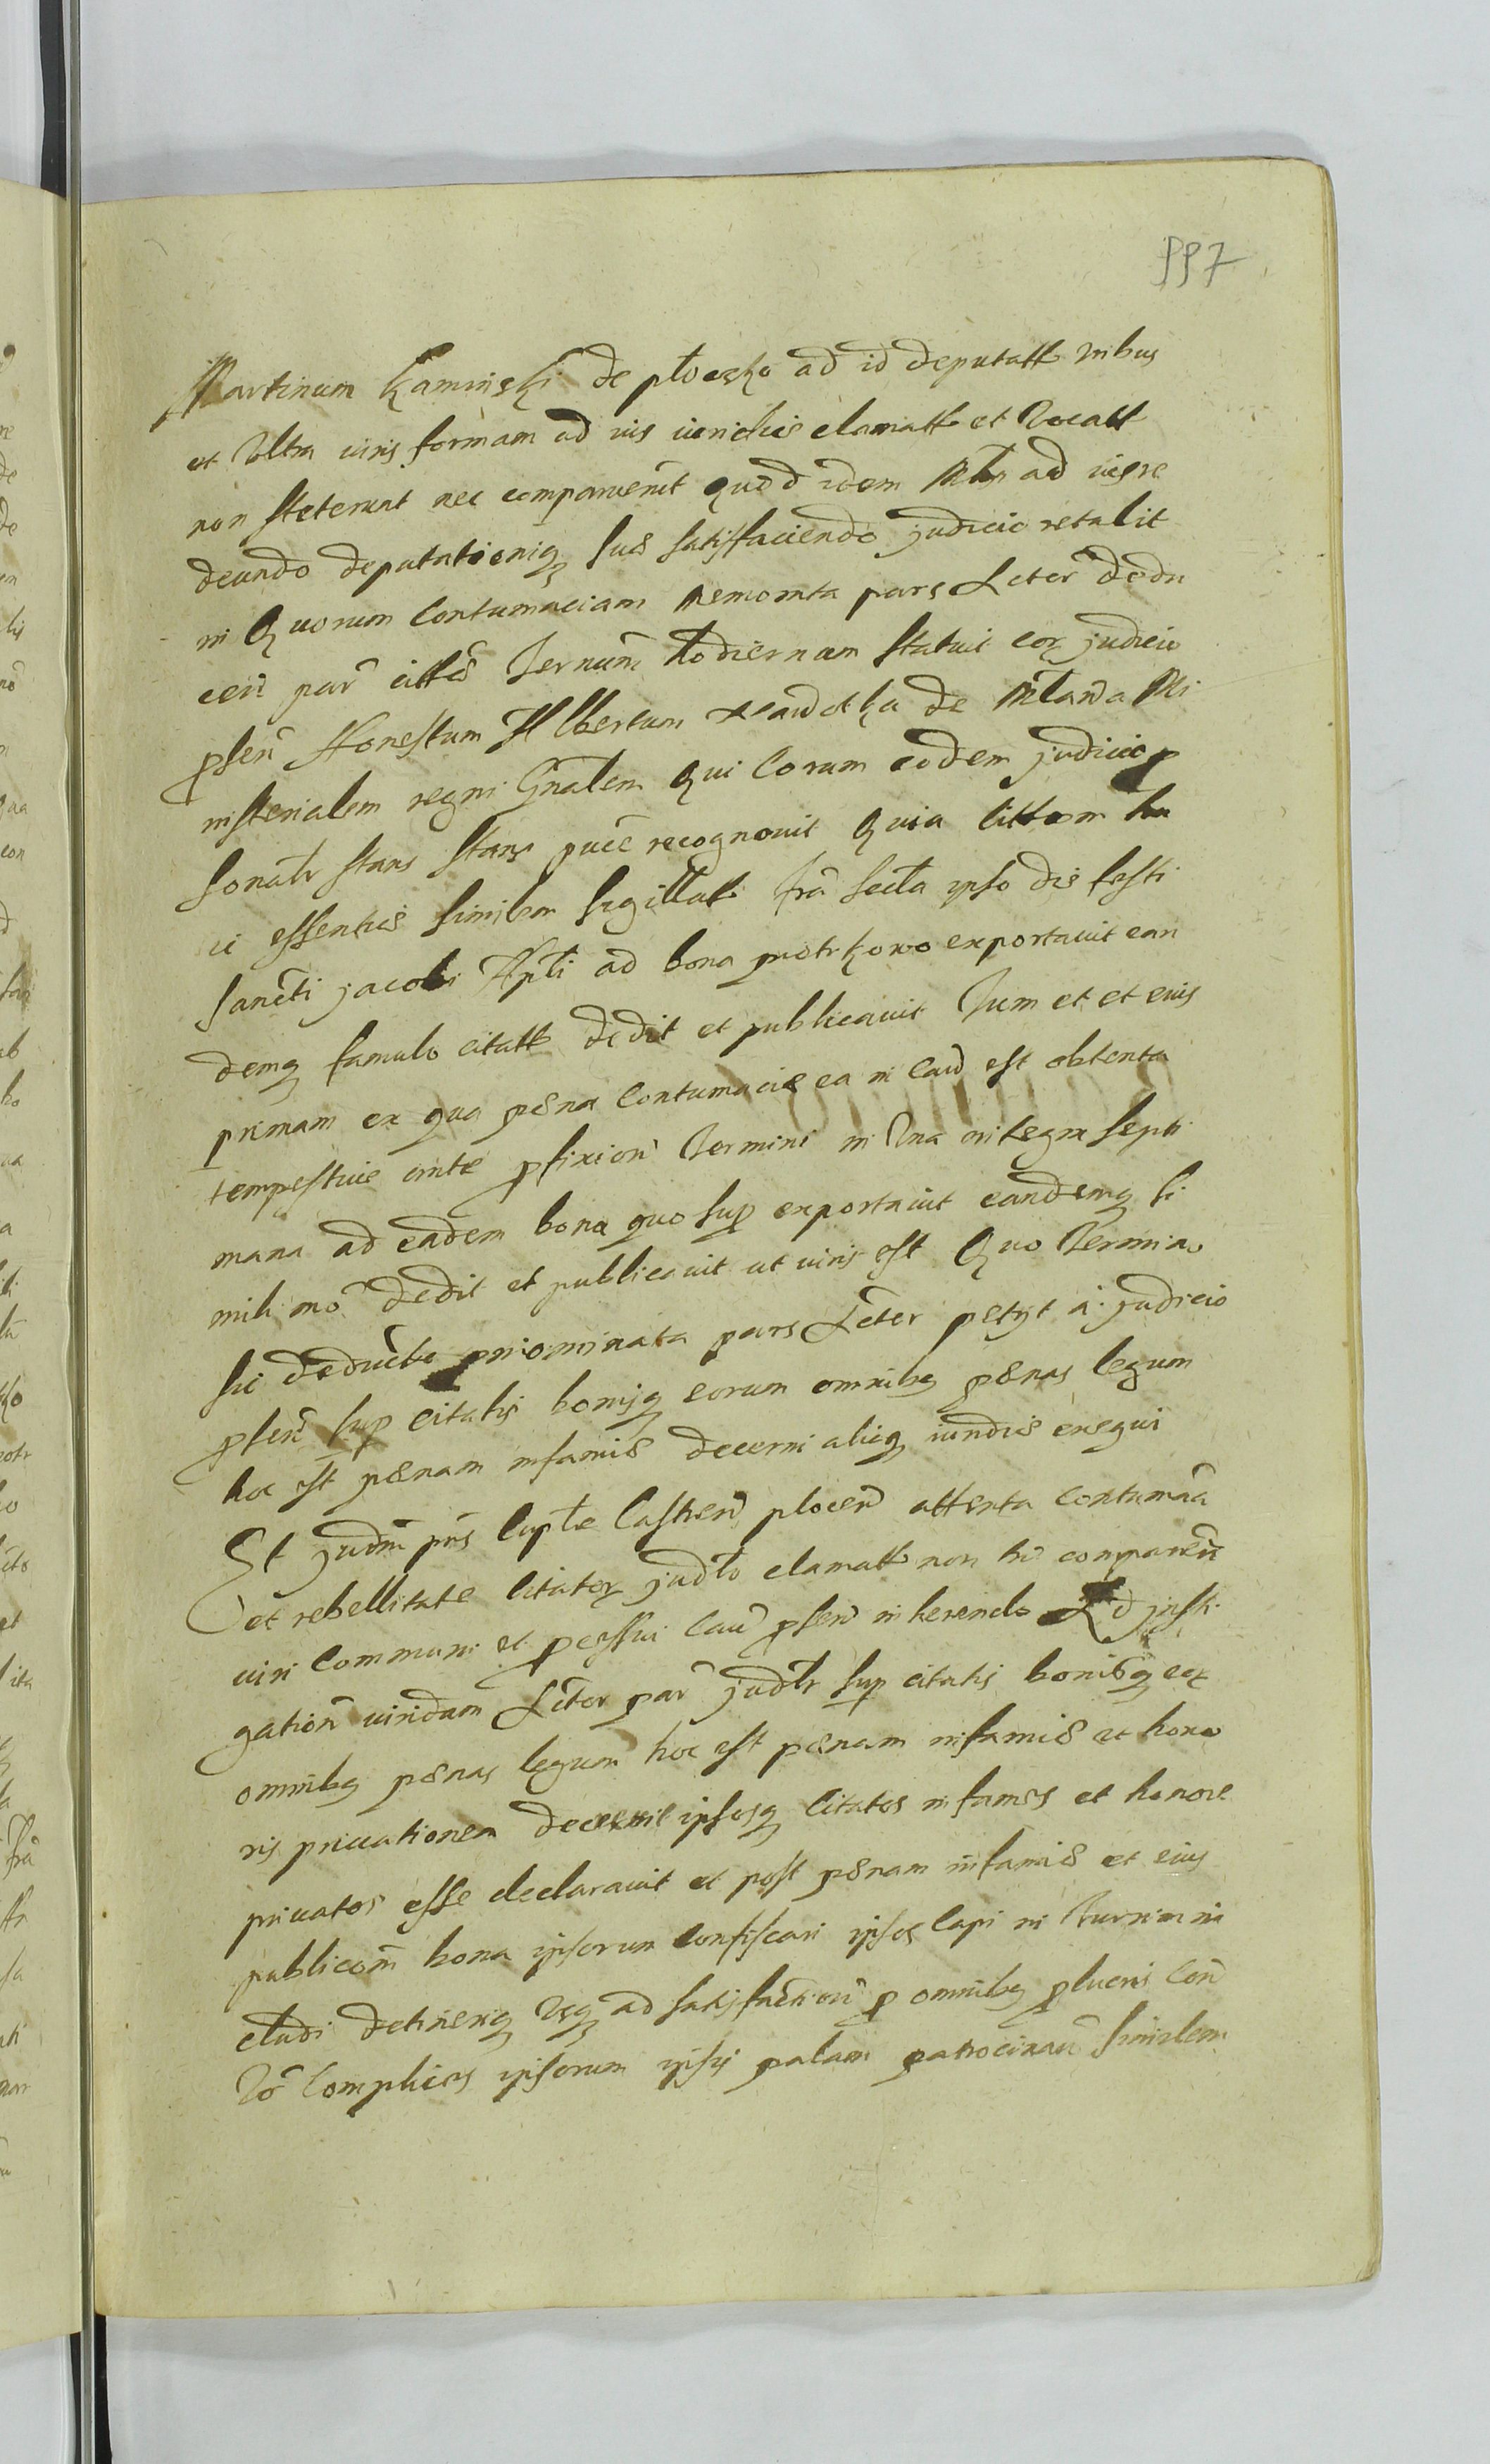 997
Martinum Kaminski de ploczko ad id deputatt tribus
et Ultra iuris formam ad ius iuridice clamatt et Vocatt
non steterunt nec comparuerunt quod idem Mlis ad iusre
deundo deputationiq suæ satisfaciendo judicio retulit
in Quorum Contumaciam memorata pars Lctor dedu
cen par cittæ Ternum hodiernam statuit cor judicio
pſen Honestum Albertum de Mlawa Mi
nisterialem regni Gnalem Qui Coram eodem judicio p
sonalr stans pnce recognouit Quia cittaom hu
ic essentiæ similem sigillatt fra secta ipso die festi
sancti jacobi Apli ad bona piotrkowo exportauit ean
demq famulo citatt dedit et publicauit Tum et et eius
primam ex qua pæna Contumaciæ ea in cau est obtenta
tempestiue ante pfixion Termini in Una integra septi
mana ad eadem bona quo sup exportauit eandemq si
mili mo dedit et publicauit ut iuris est Quo Termino
sic deducto prnominata pars Lctor petyt a judicio
pſen sup citatis bonisq eorum omnibq pænas legum
hoc est pænam infamiæ decerni aliaq iuridice exequi
Et judm pns Capte Castren plocen attenta contumaa
et rebellitate Citator judlr clamatt non tn comparen
iuri communi et pcessui cau pſen inherendo Ad jnsti
gation uiridam Lctor par judlr sup citatis bonisq eor
omnibq pænas legum hoc est pænam infamiæ et hono
ris priuationem decreuit ipsosq Citatos infames et honore
priuatos esse declarauit et post pænam infamiæ et eius
publicaom bona ipsorum confiscari ipsos Capi in Turrim in
cludi detineriq Usq ad satisfaction p omnibq plucris Con
Vo Complices ipsorum ipsis palam patrocinan similem